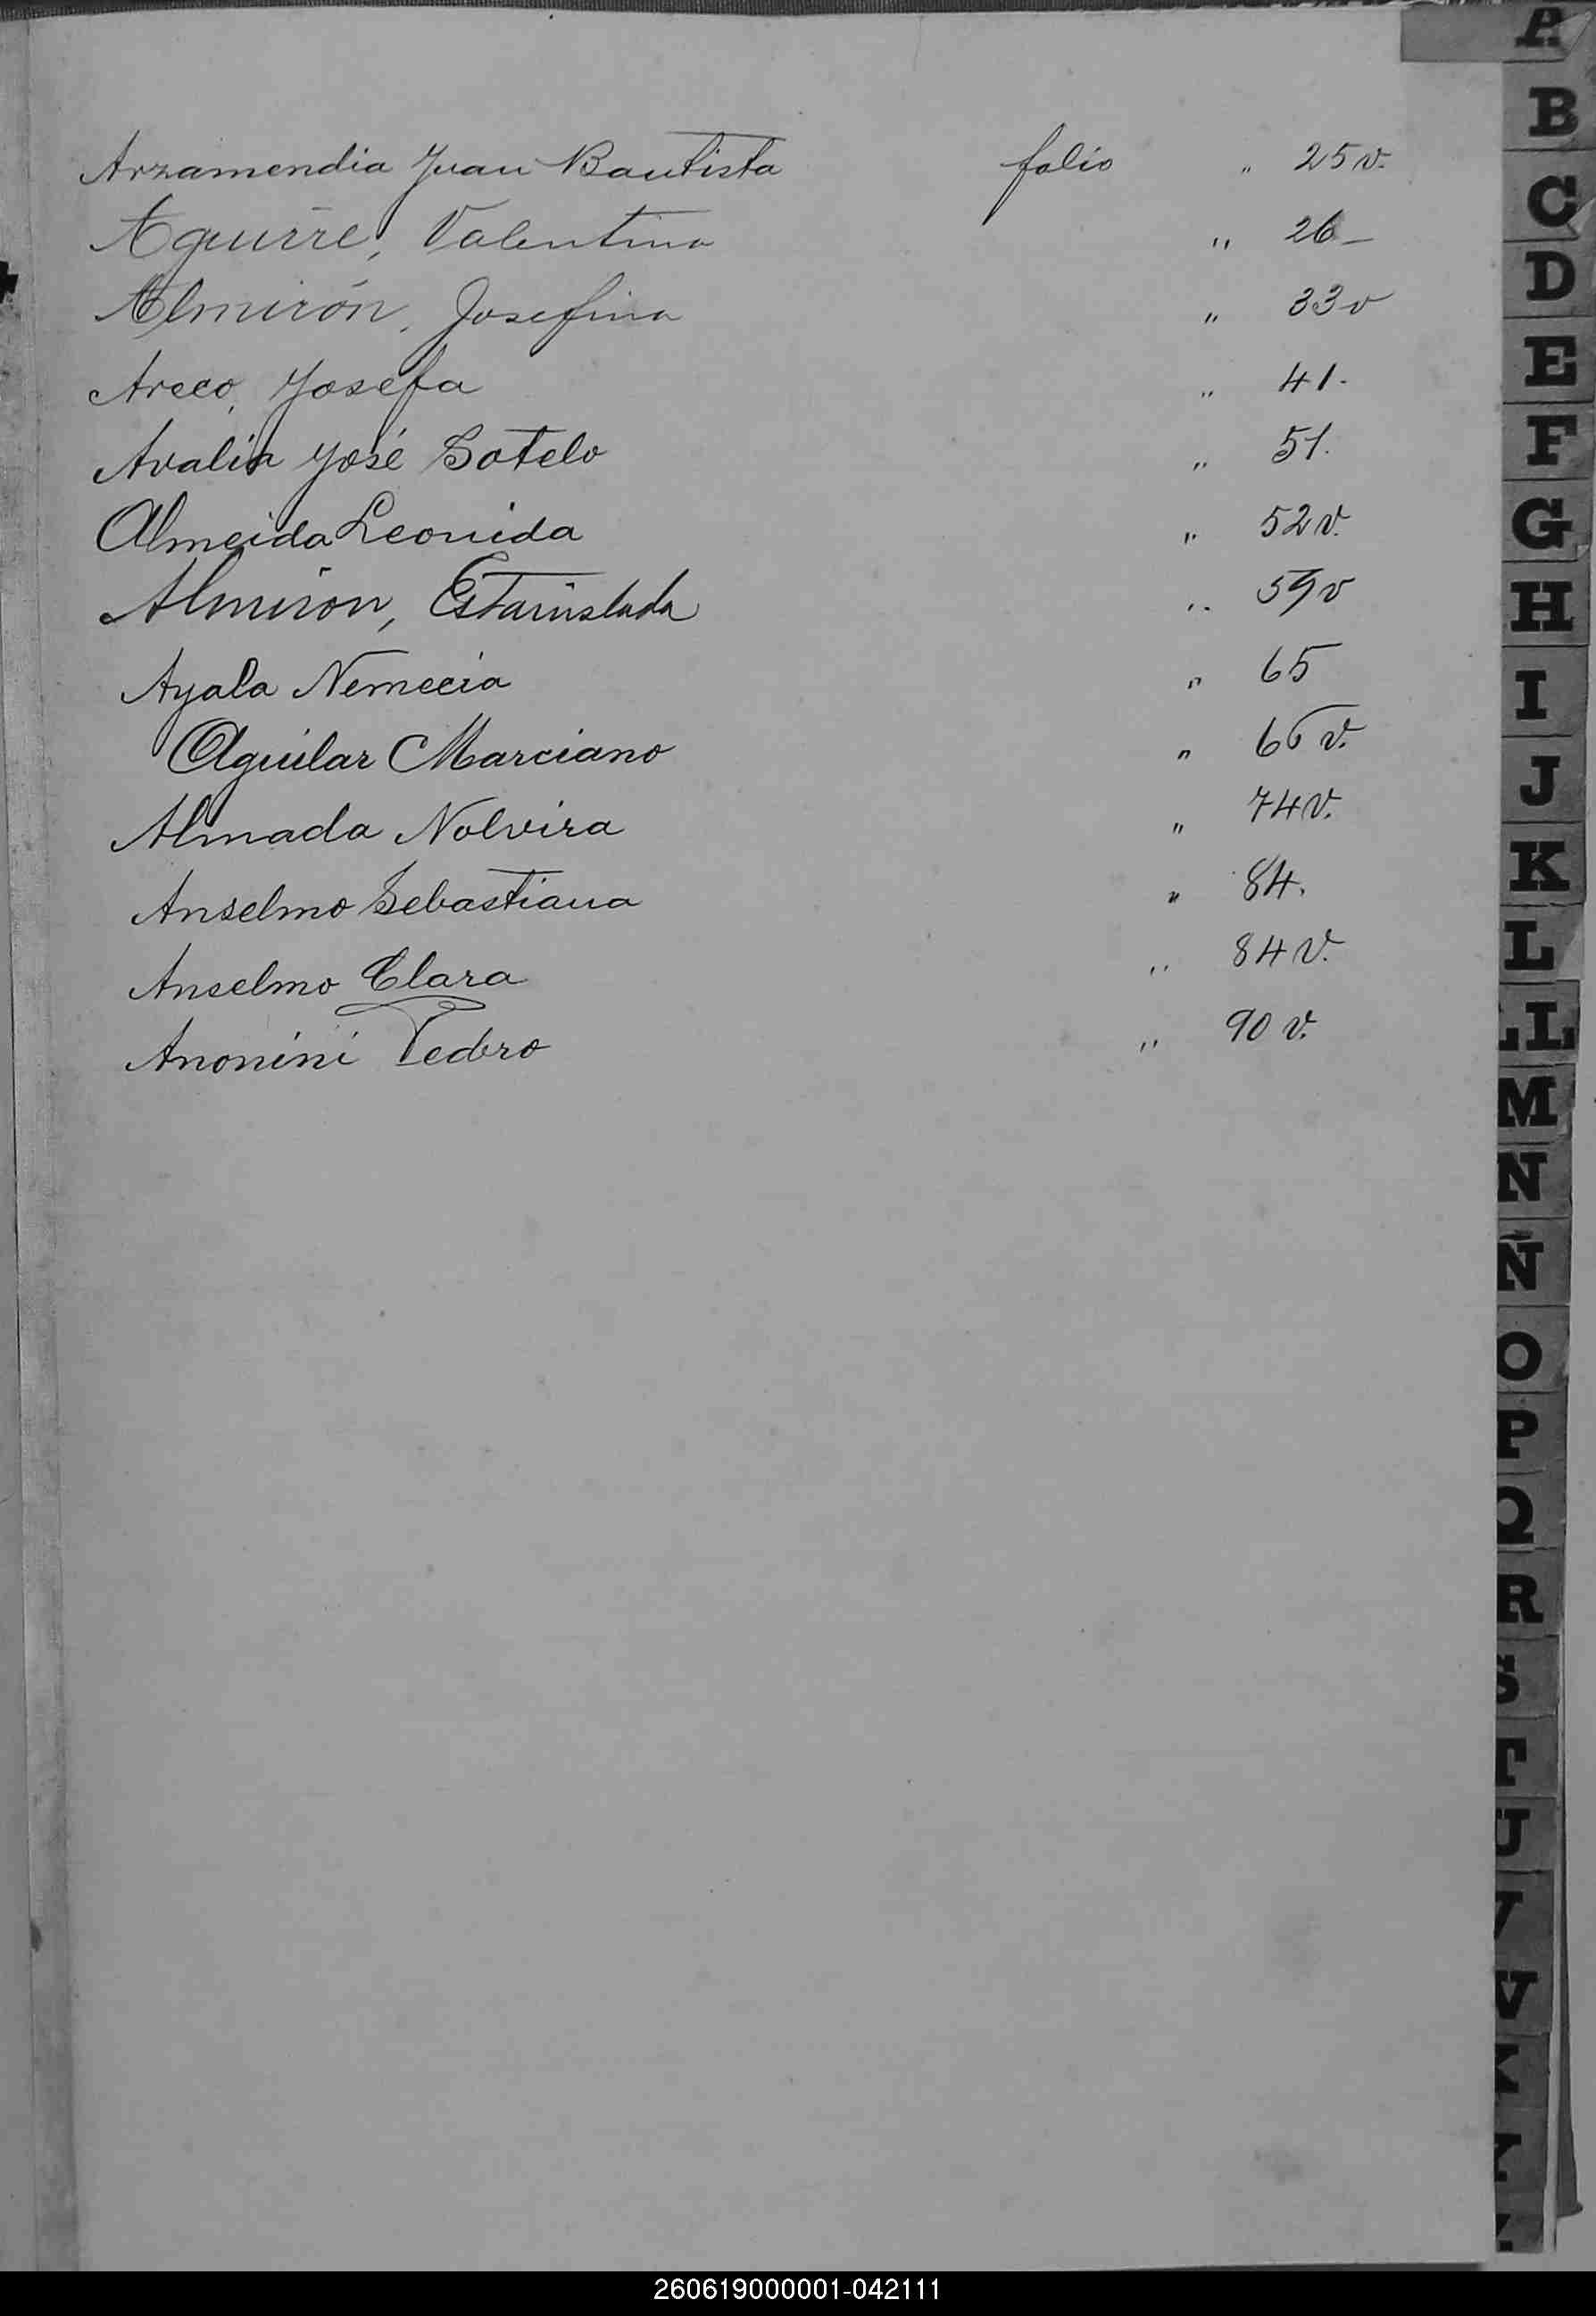 Arzamendia Juan Bautista folio " 25 v.
Aguirre, Valentina " 26 -
Almirón, Josefina " 33 v
Areco, Josefa " 41.
Avalin José Sotelo " 51.
Almeida Leonida " 52 v.
Almiron, Estanislada " 59 v
Ayala Nemecia " 65
Aguilar Marciano " v.
Almada Nolvira " 74 v.
Anselmo Sebastiana " 84.
Anselmo Clara " 84 v.
Anonini Pedro " 90 v.
A
B
C
D
E
F
G
H
I
J
K
L
LL
M
N
Ñ
O
P
Q
R
S
T
U
V
260619000001-042111